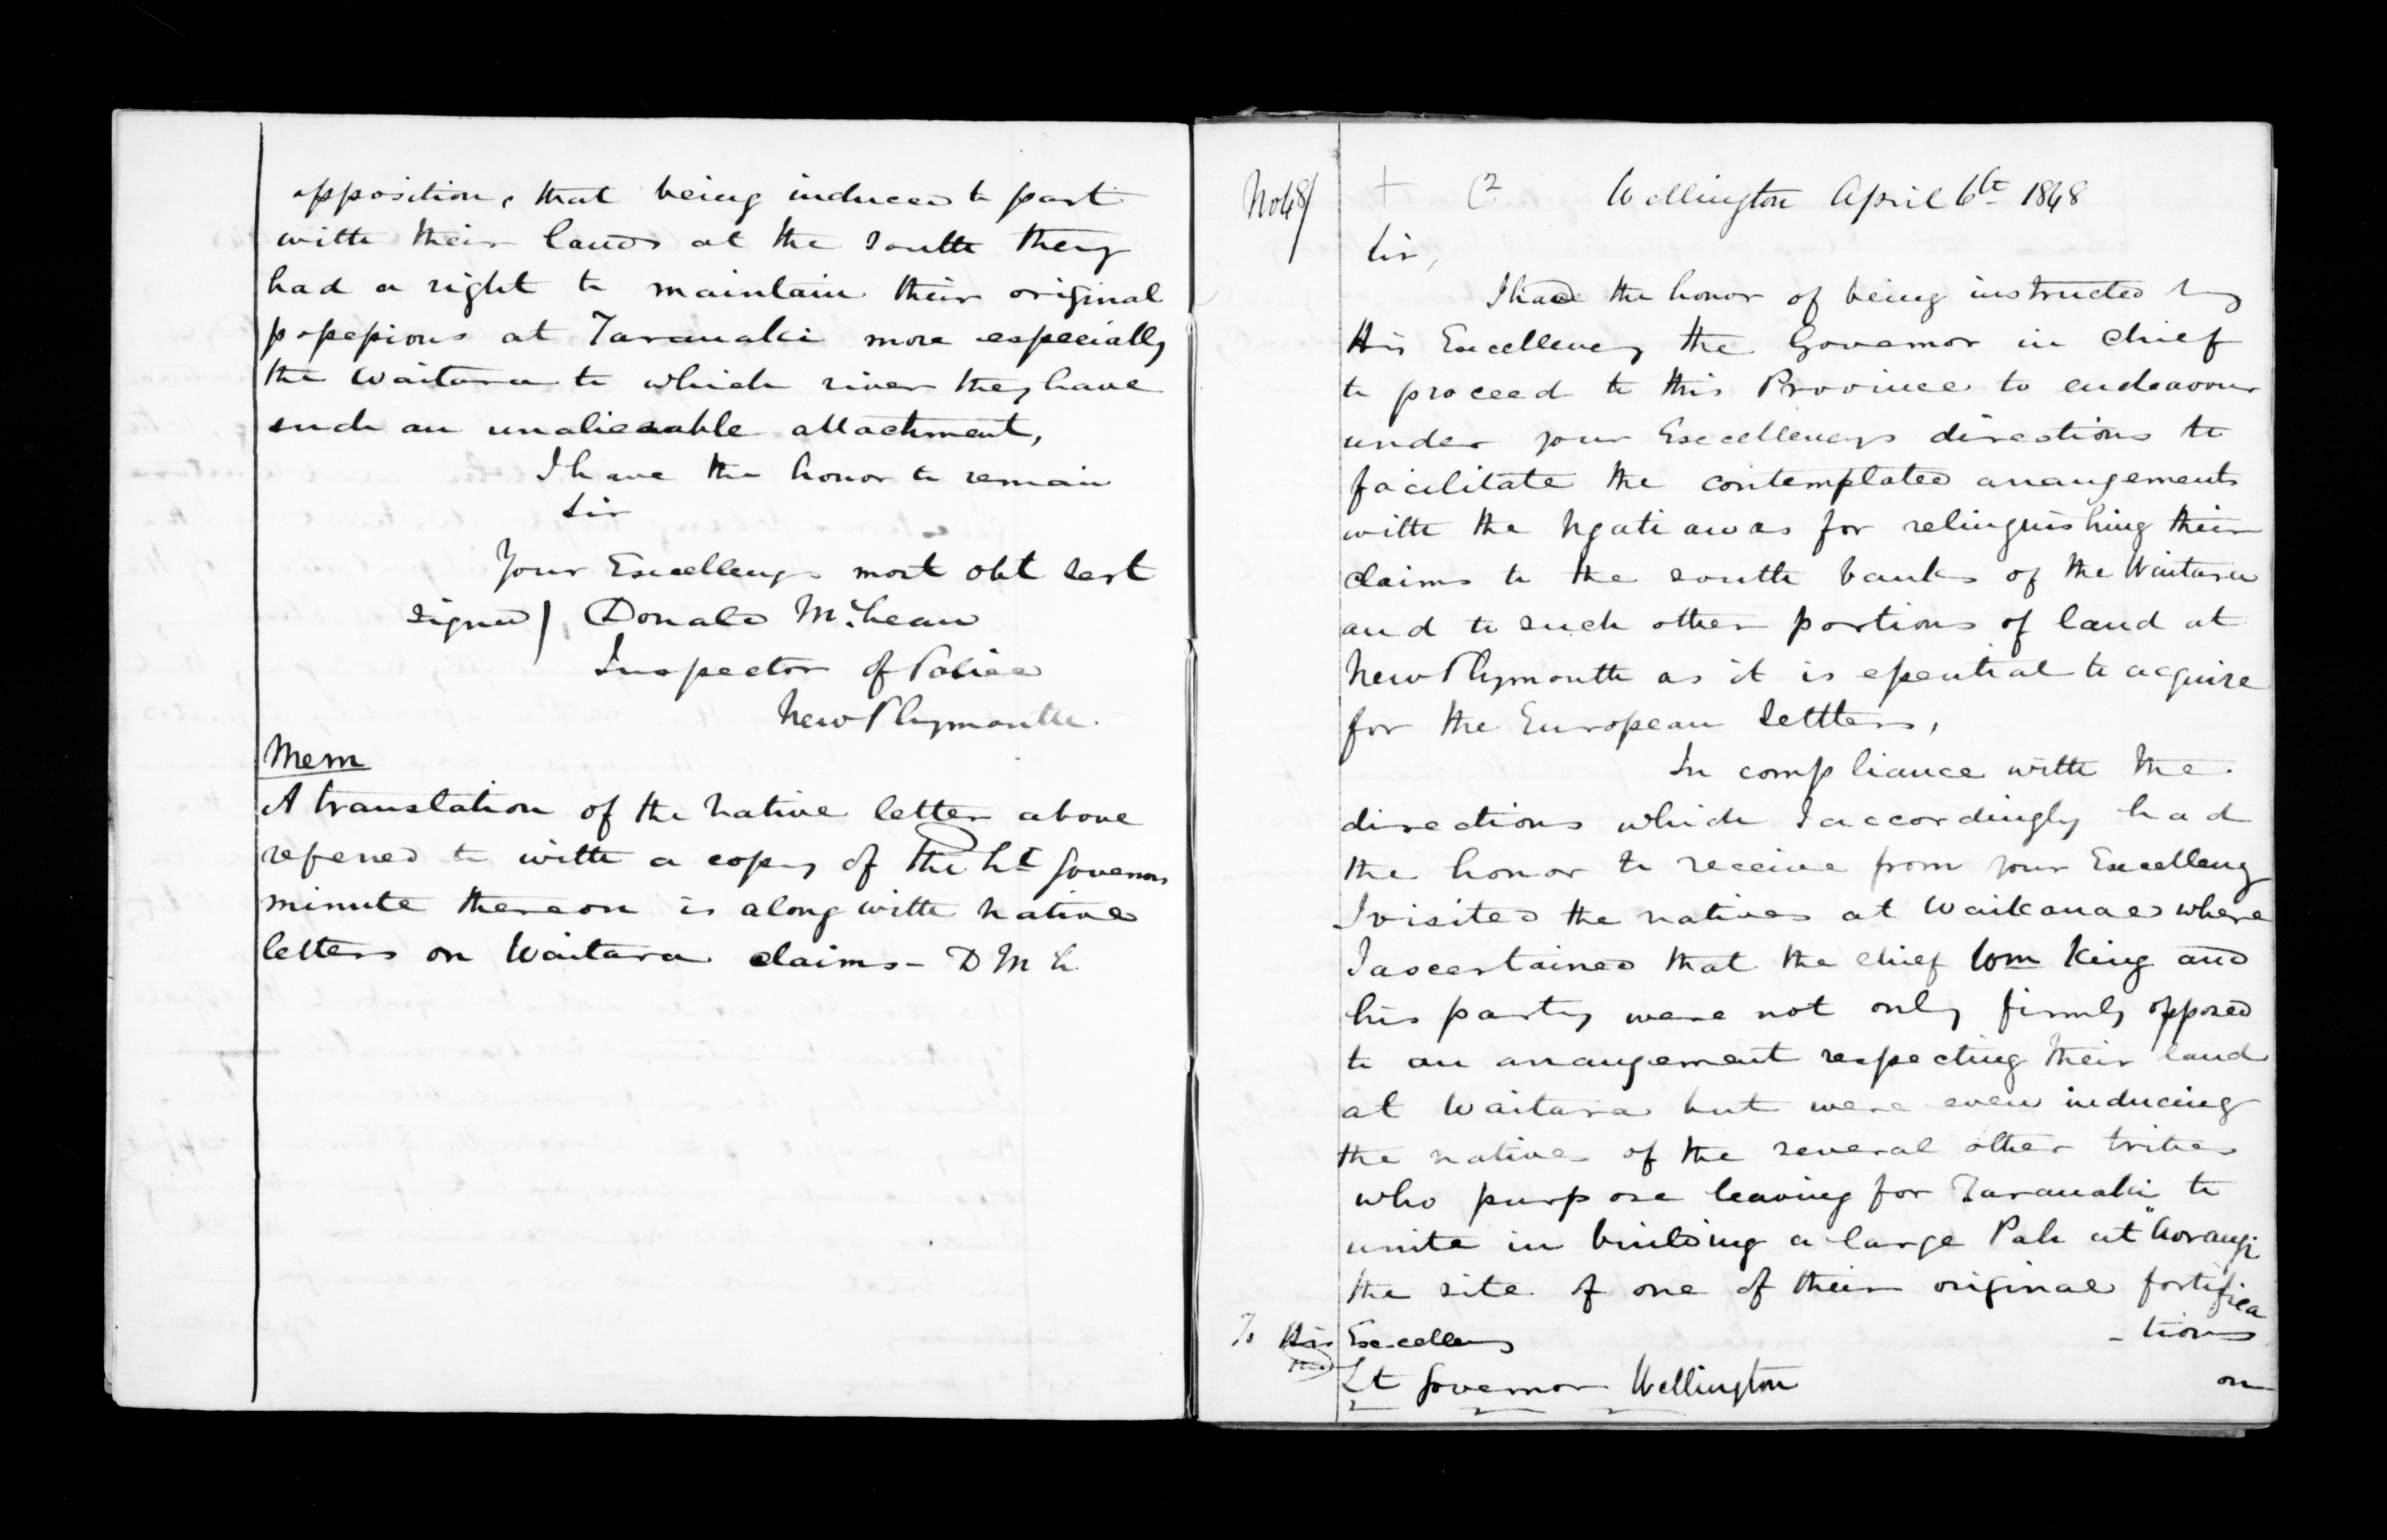 opposition, that being induced to part
with their lands at the south they
had a right to maintain their original
possessions at Taranaki more especially
the Waitara to which river they have
such an unalienable attachment,
I have the honor to remain
Sir
Your Excellencys most obt sert
signed / Donald McLean
Inspector of Police
New Plymouth.
Mem
A translation of the native letter above
referred to with a copy of the Lt Governors
minute thereon is along with native
letters on Waitara claims - D M L
No 48/
Wellington April 6th 1848
Sir,
I had the honor of being instructed by
His Excellency the Governor in chief
to proceed to this Province to endeavour
under your Excellencys directions to
facilitate the contemplated arrangements
with the Ngatiawas for relinquishing their
claims to the south banks of the Waitara
and to such other portions of land at
New Plymouth as it is essential to acquire
for the European settlers,
In compliance with the
directions which I accordingly had
the honor to receive from your Excellency
I visited the natives at Waikanae where
I ascertained that the chief Wm King and
his party were not only firmly opposed
to an arrangement respecting their land
at Waitara but were even inducing
the natives of the several other tribes
who purpose leaving for Taranaki to
unite in building a large Pah at "Aorangi
the site of one of their original fortifica
-tions
To His Excellency
Lt Governor Wellington
on